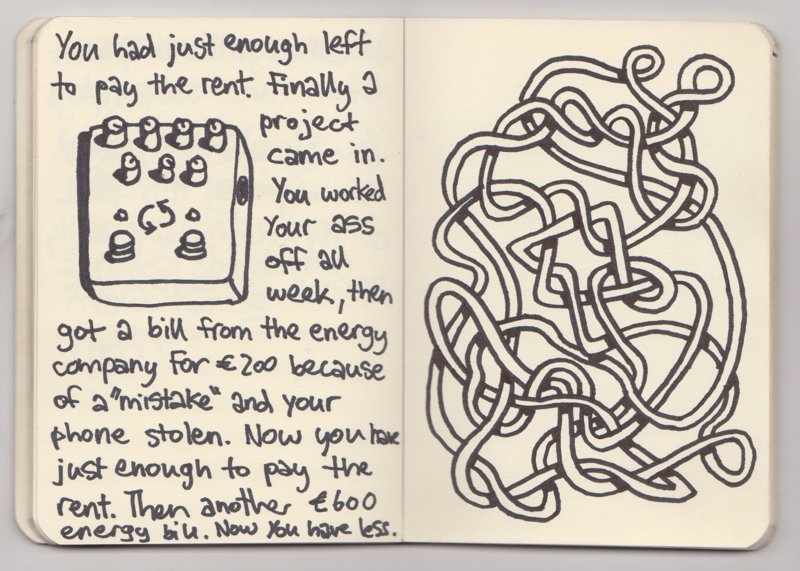 You had just enough left
to pay the rent. Finally a
project
came in.
You worked
Your ass
off all
week, then
got a bill from the energy
company for €200 because
of a "mistake" and your
phone stolen. Now you have
just enough to pay the
rent. Then another €600
energy bill. Now You have less.